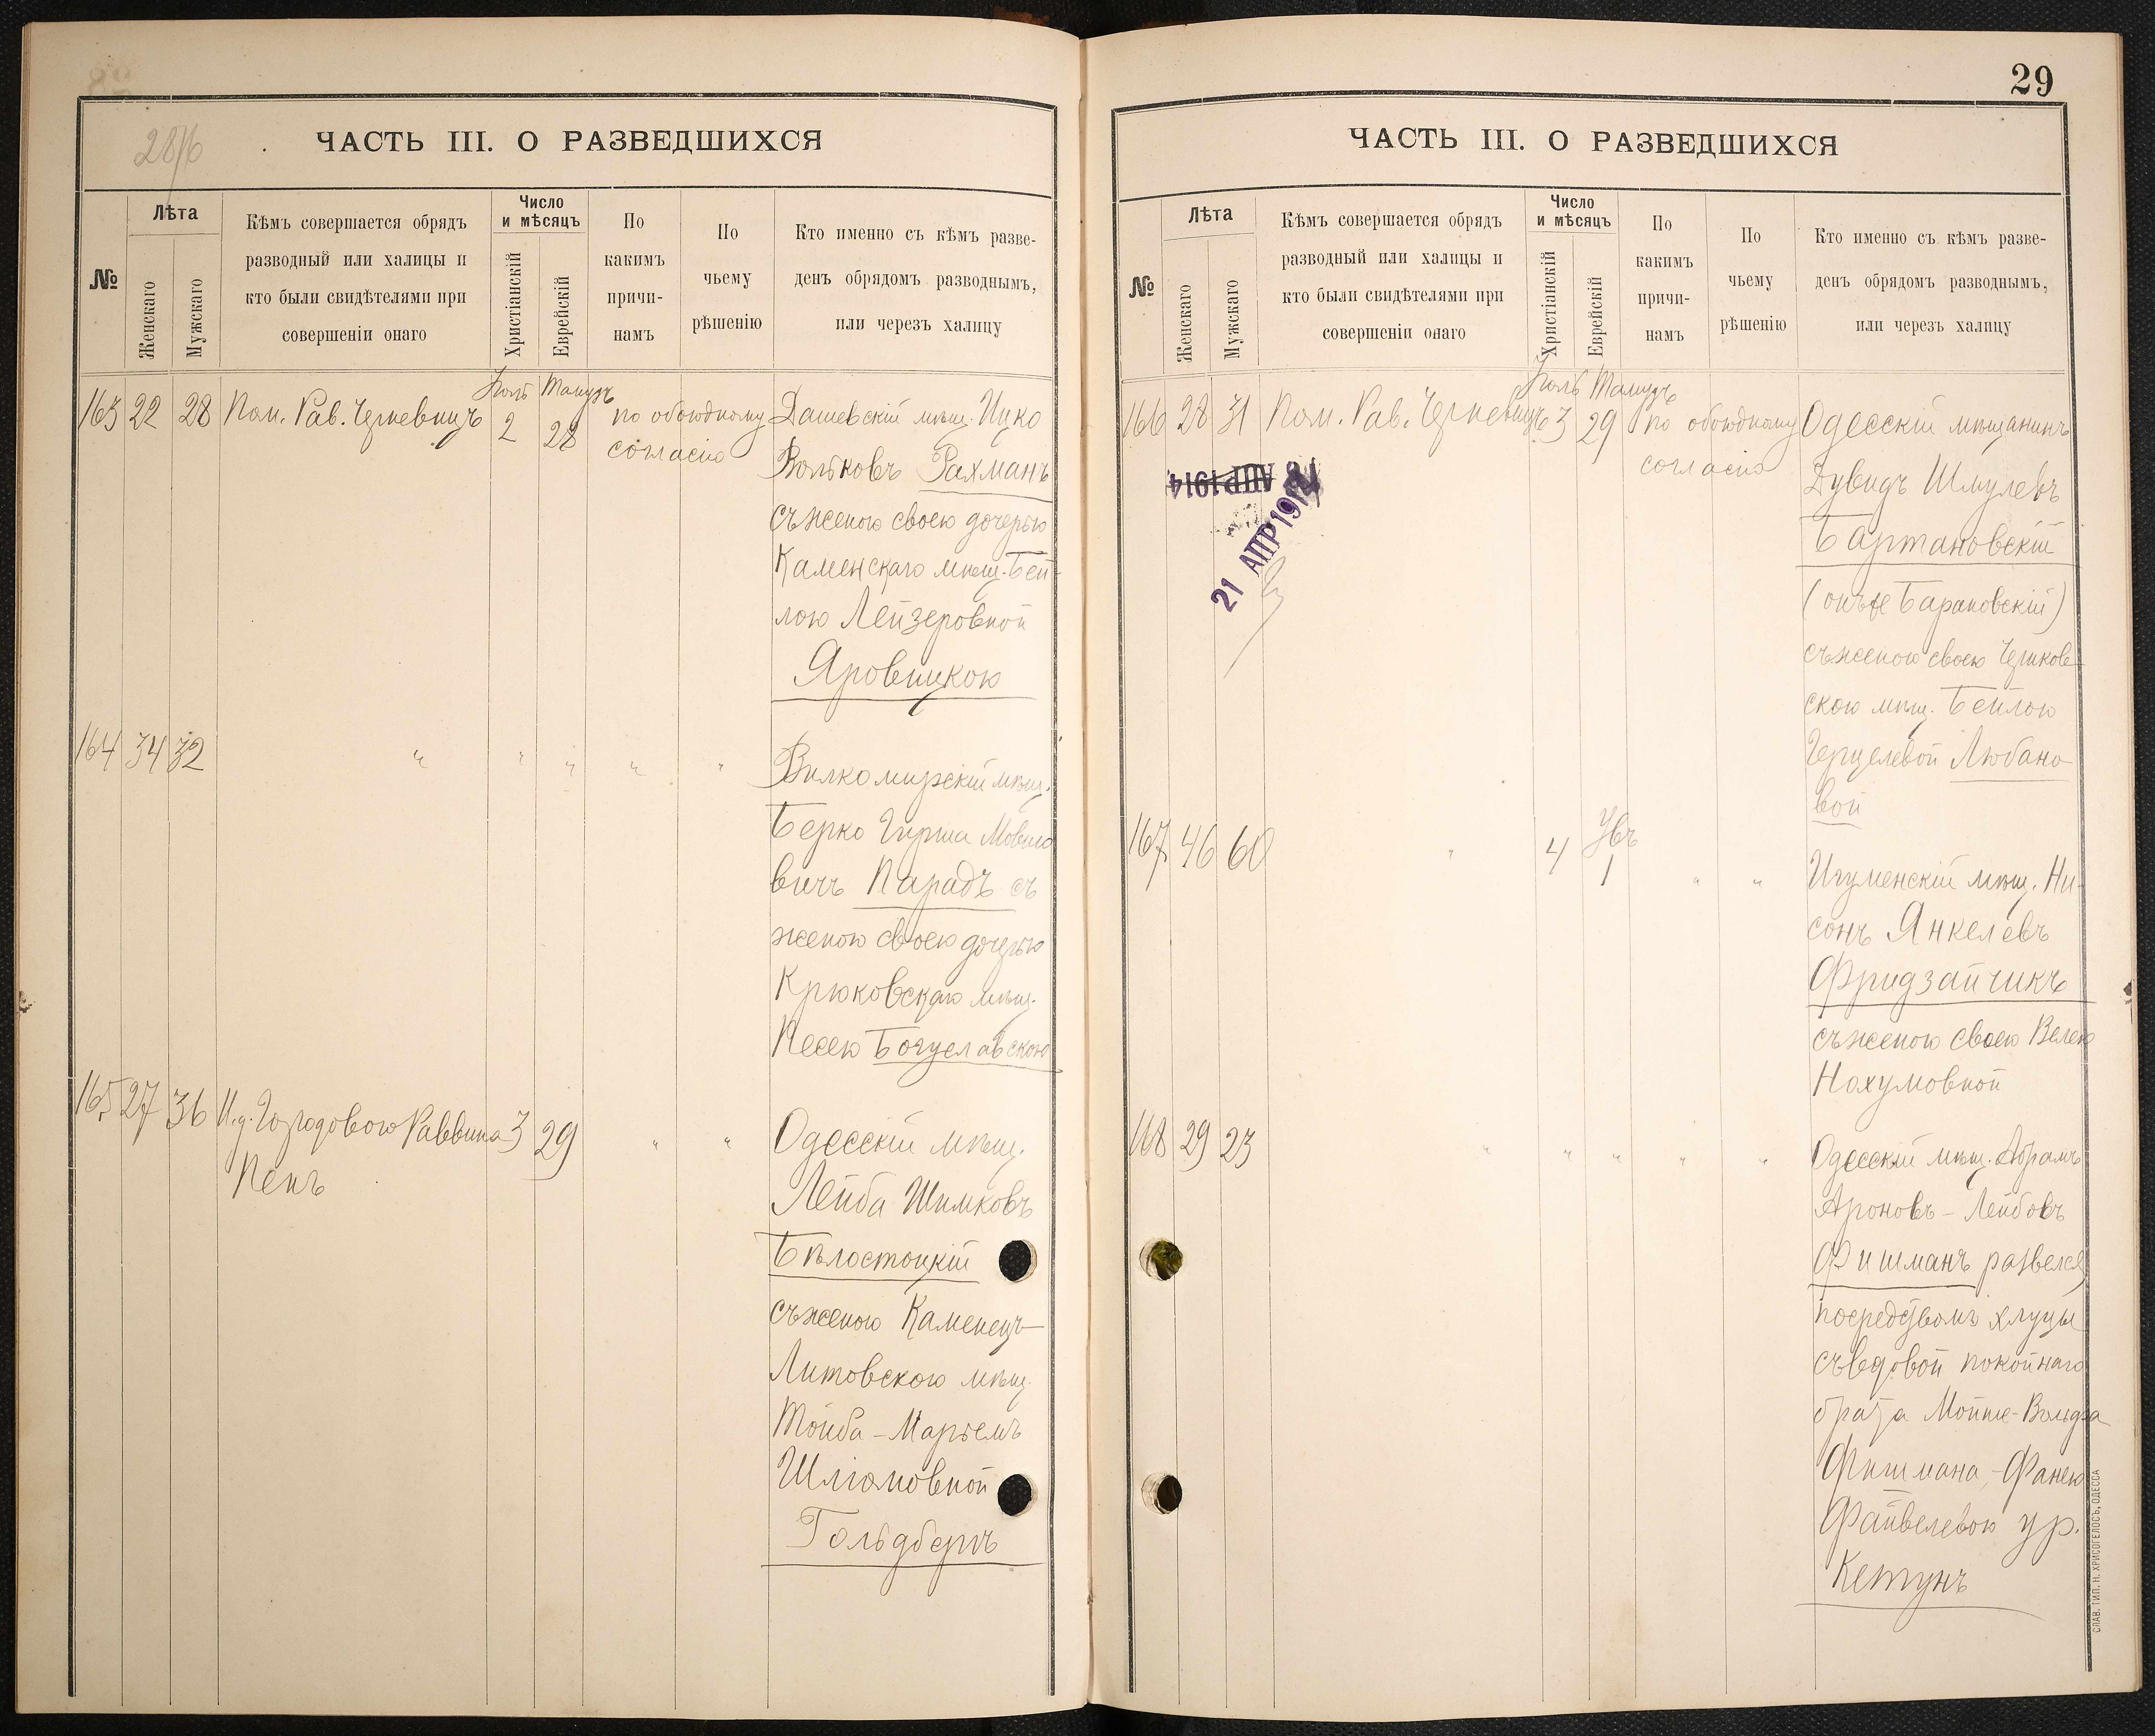 28/6
ЧАСТЬ III. О РАЗВЕДШИХСЯ
№
Лѣта
Женскаго
Мужскаго
Кѣмъ совершается обрядъ
разводный или халицы и
кто были свидѣтелями при
совершеніи онаго
Число
и мѣсяцъ
Христіанскій
Еврейскій
По
какимъ
причи-
намъ
По
чьему
рѣшенію
Кто именно съ кѣмъ разве-
денъ обрядомъ разводнымъ,
или черезъ халицу
163 22 28 Пом. Рав. Черневицъ
Іюль 2
Тамузъ 28
по обоюдному
согласію
Дашевскій мѣщ. Ицко
Вольковъ Рахманъ
съ женою своею дочерью
Каменскаго мѣщ. Бей-
лою Лейзеровной
Яровицкою
164 34 32 " " " " "
Вилкомирскій мѣщ.
Берко Гирша Мовшо
вичъ Парадъ съ
женою своею дочерью
Крюковскаго мѣщ.
Песею Богуславскою
165 27 36 И.д. Городового Раввина 3 29 " "
Пенъ
Одесскій мѣщ.
Лейба Шимковъ
Бѣлостоцкій
съ женою Каменецъ-
Литовскою мѣщ.
Тойба-Марьемъ
Шліомовной
Гольдбергъ
29
ЧАСТЬ III. О РАЗВЕДШИХСЯ
№
Лѣта
Женскаго
Мужскаго
Кѣмъ совершается обрядъ
разводный или халицы и
кто были свидѣтелями при
совершеніи онаго
Число
и мѣсяцъ
Христіанскій
Еврейскій
По
какимъ
причи-
намъ
По
чьему
рѣшенію
Кто именно съ кѣмъ разве-
денъ обрядомъ разводнымъ,
или черезъ халицу
166 28 31 Пом. Рав. Черневицъ
Іюль 3
Тамузъ 29
по обоюдному
согласію
АПР 1914
21 АПР 1914
Одесскій мѣщанинъ
Дувидъ Шмулевъ
Бартановскій
(онъ же Барановскій)
съ женою своею Чериков-
скою мѣщ. Бейлою
Герцелевой Любано
вой
167 46 60 " 4
Увъ 1 " "
Игуменскій мѣщ. Ни-
сонъ Янкелевъ
Фридзайчикъ
съ женою своею Велею
Нохумовной
168 29 23 " " " " "
Одесскій мѣщ. Абрамъ
Ароновъ-Лейбовъ
Фишманъ развелся
посредствомъ хлуцы
съ вдовой покойнаго
брата Мойше-Вольфа
Фишмана - Фанею
Файвелевою ур.
Кетунъ
СЛАВ. ТИП. Н. ХРИСОГЕЛОСЪ, ОДЕССА